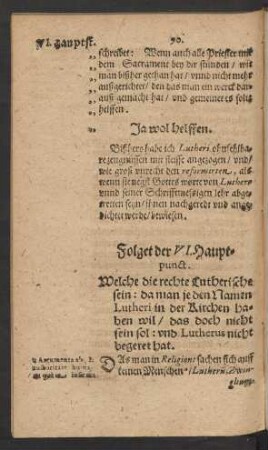 VI. Hauptst.
90.
schreibet: Wenn auch alle Priester mit
dem Sacrament bey dir stünden / wie
man bißher gethan hat / vnnd nicht mehr
außgerichtet / den das man ein werck dar-
auß gemacht hat / vnd gemeinet es solt
helffen.
Ja wol helffen.
Bißhero habe ich Lutheri
rezeugnüssen mit fleisse angezogen / vnd /
wie groß vnrecht den reformirten, als
wenn sie
vnnd seiner Schrifftmessigen lehr abge-
tretten sein / ihnen nachgeredt vnd ange-
dichtet werde / erwiesen.
Folget der VI. Haupt-
punct.
Welche die rechte Lutherische
sein: da man je den Namen
Lutheri in der Kirchen ha-
ben wil / das doch nicht
sein sol: vnd Lutherus nicht
begeret hat.
DAs man in Religions sachen sich auff
Menschen / Luthern